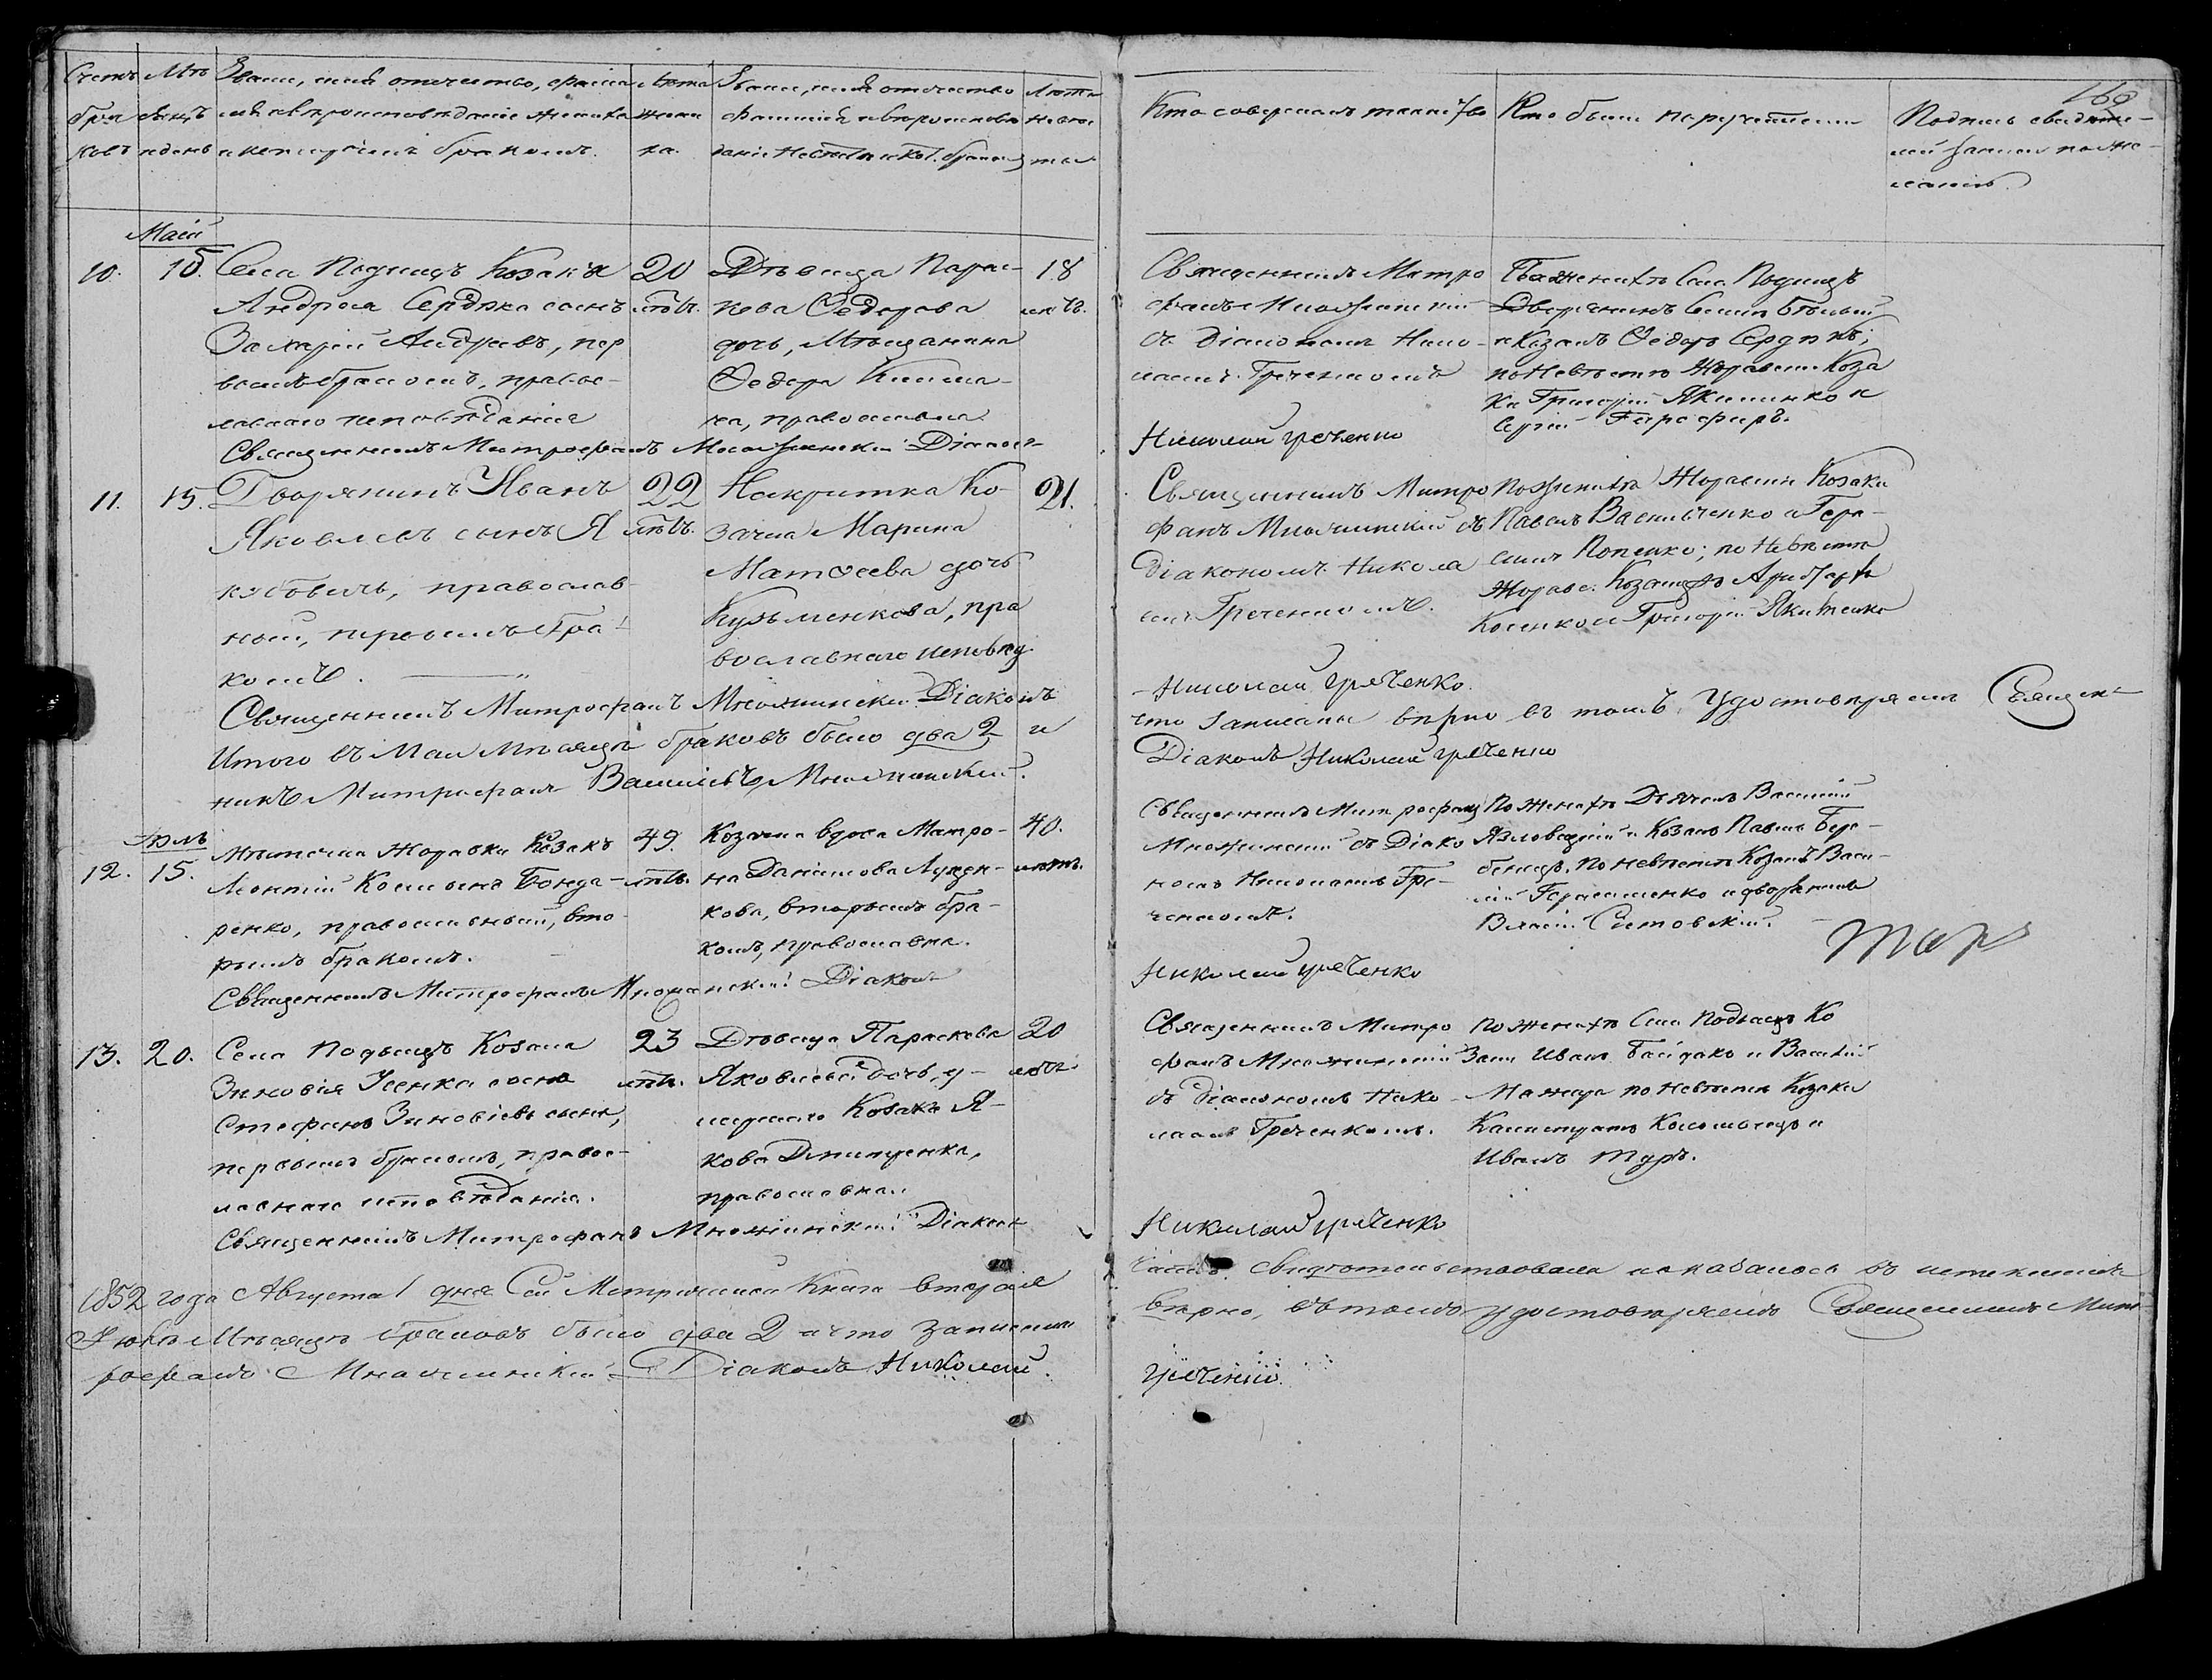 Счетъ браковъ
Мѣсяцъ и день
Званіе, имя, отечество, фамилія и вѣроисповѣданіе жениха и которымъ бракомъ.
Лѣта жениха.
Званіе, имя, отечество фамилія и вѣроисповѣданіе невѣсты и кот. бракомъ
Лѣта невѣсты
Кто совершалъ таинство
Кто были поручители
Подпись свидѣтелей записи по желанію.
162
Маій
10. 15.
Села Подищъ Козака
Андрея Сердюка сынъ
Захарій Андреевъ, пер
вымъ бракомъ, правос-
лавнаго исповѣданія
20
лѣтъ.
Дѣвица Парас-
кева Ѳедорова
дочь, Мѣщанина
Ѳедора
православна
18
лѣтъ.
Священникъ Митро
фанъ Множинскій
съ Діакономъ Нико-
лаемъ Греченкомъ
По женихѣ Села Подищъ
Дворянинъ
и Козакъ Ѳедоръ Сердюкъ;
по Невѣстѣ Жоравски Коза
ки Григорій Якименко и
Священникъ Митрофанъ Множинскій Діаконъ
Николай Греченко
11. 15.
Дворянинъ Иванъ
Яковлевъ сынъ Я
кубовичъ, православ
ный, первымъ бра-
комъ.
22
лѣтъ.
Козачка Марина
Матѳеева дочь
Кузьменкова, пра
вославнаго исповѣд.
21.
Священникъ Митро
фанъ Множинскій съ
Діакономъ Никола
емъ Греченкомъ.
По женихѣ Жоравски Козаки
Павелъ Васильченко и Гера-
симъ Попенко; по Невѣстѣ
Жорав. Козаки
Косенко и Григорій Якименко
Священникъ Митрофанъ Множинскій Діаконъ
Николай Греченко.
Итого въ Маи Мѣсяцѣ браковъ было два 2 и
что записаны вѣрно въ томъ удостовѣряемъ Священ-
никъ Митрофанъ Васильевъ Множинскій.
Діаконъ Николай Греченко
Іюль
12. 15.
Мѣстечка Жоравки Козакъ
Леонтій Бонда-
ренко, православный, вто
рымъ бракомъ.
49.
лѣтъ.
Козачка вдова Матро-
на Данилова Луцен-
кова, вторымъ бра-
комъ, православна.
40.
лѣтъ.
Священникъ Митрофанъ
Множинскій съ Діако
номъ Николаемъ Гре-
ченкомъ.
По женихѣ Дьячокъ Василій
Язловецкій и Козакъ Павелъ Бере-
по невѣстѣ Козакъ Васи-
лій Герасименко и дворянинъ
Василій Ситовскій.
Священникъ Митрофанъ Множинскій Діаконъ
Николай Греченко
13. 20.
Села Подищъ Козака
Зиновія Усенка сынъ
Стефанъ Зиновіевъ сынъ,
первымъ бракомъ, право-
лавнаго исповѣданія.
23
лѣтъ.
Дѣвица Параскева
Яковлева дочь, у-
мершаго Козака Я-
кова Дмитренка,
православна
20
лѣтъ
Священникъ Митро
фанъ Множинскій
съ Діакономъ Нико-
лаемъ Греченкомъ.
По женихѣ Села Подищъ Ко
заки Иванъ Байдакъ и Василій
Мажара по невѣстѣ Козаки
Калистратъ Коломыецъ и
Иванъ Туръ.
Священникъ Митрофанъ Множинскій Діаконъ
Николай Греченко
1852 года Августа 1 дня Сія Метрическая Книга второй
частью свидѣтельствована и оказалось въ истекшемъ
Іюлѣ Мѣсяцѣ браковъ было два 2 и что записаны
вѣрно, въ томъ удостовѣряемъ Священникъ Мит-
рофанъ Множинскій Діаконъ Николай
Греченко.